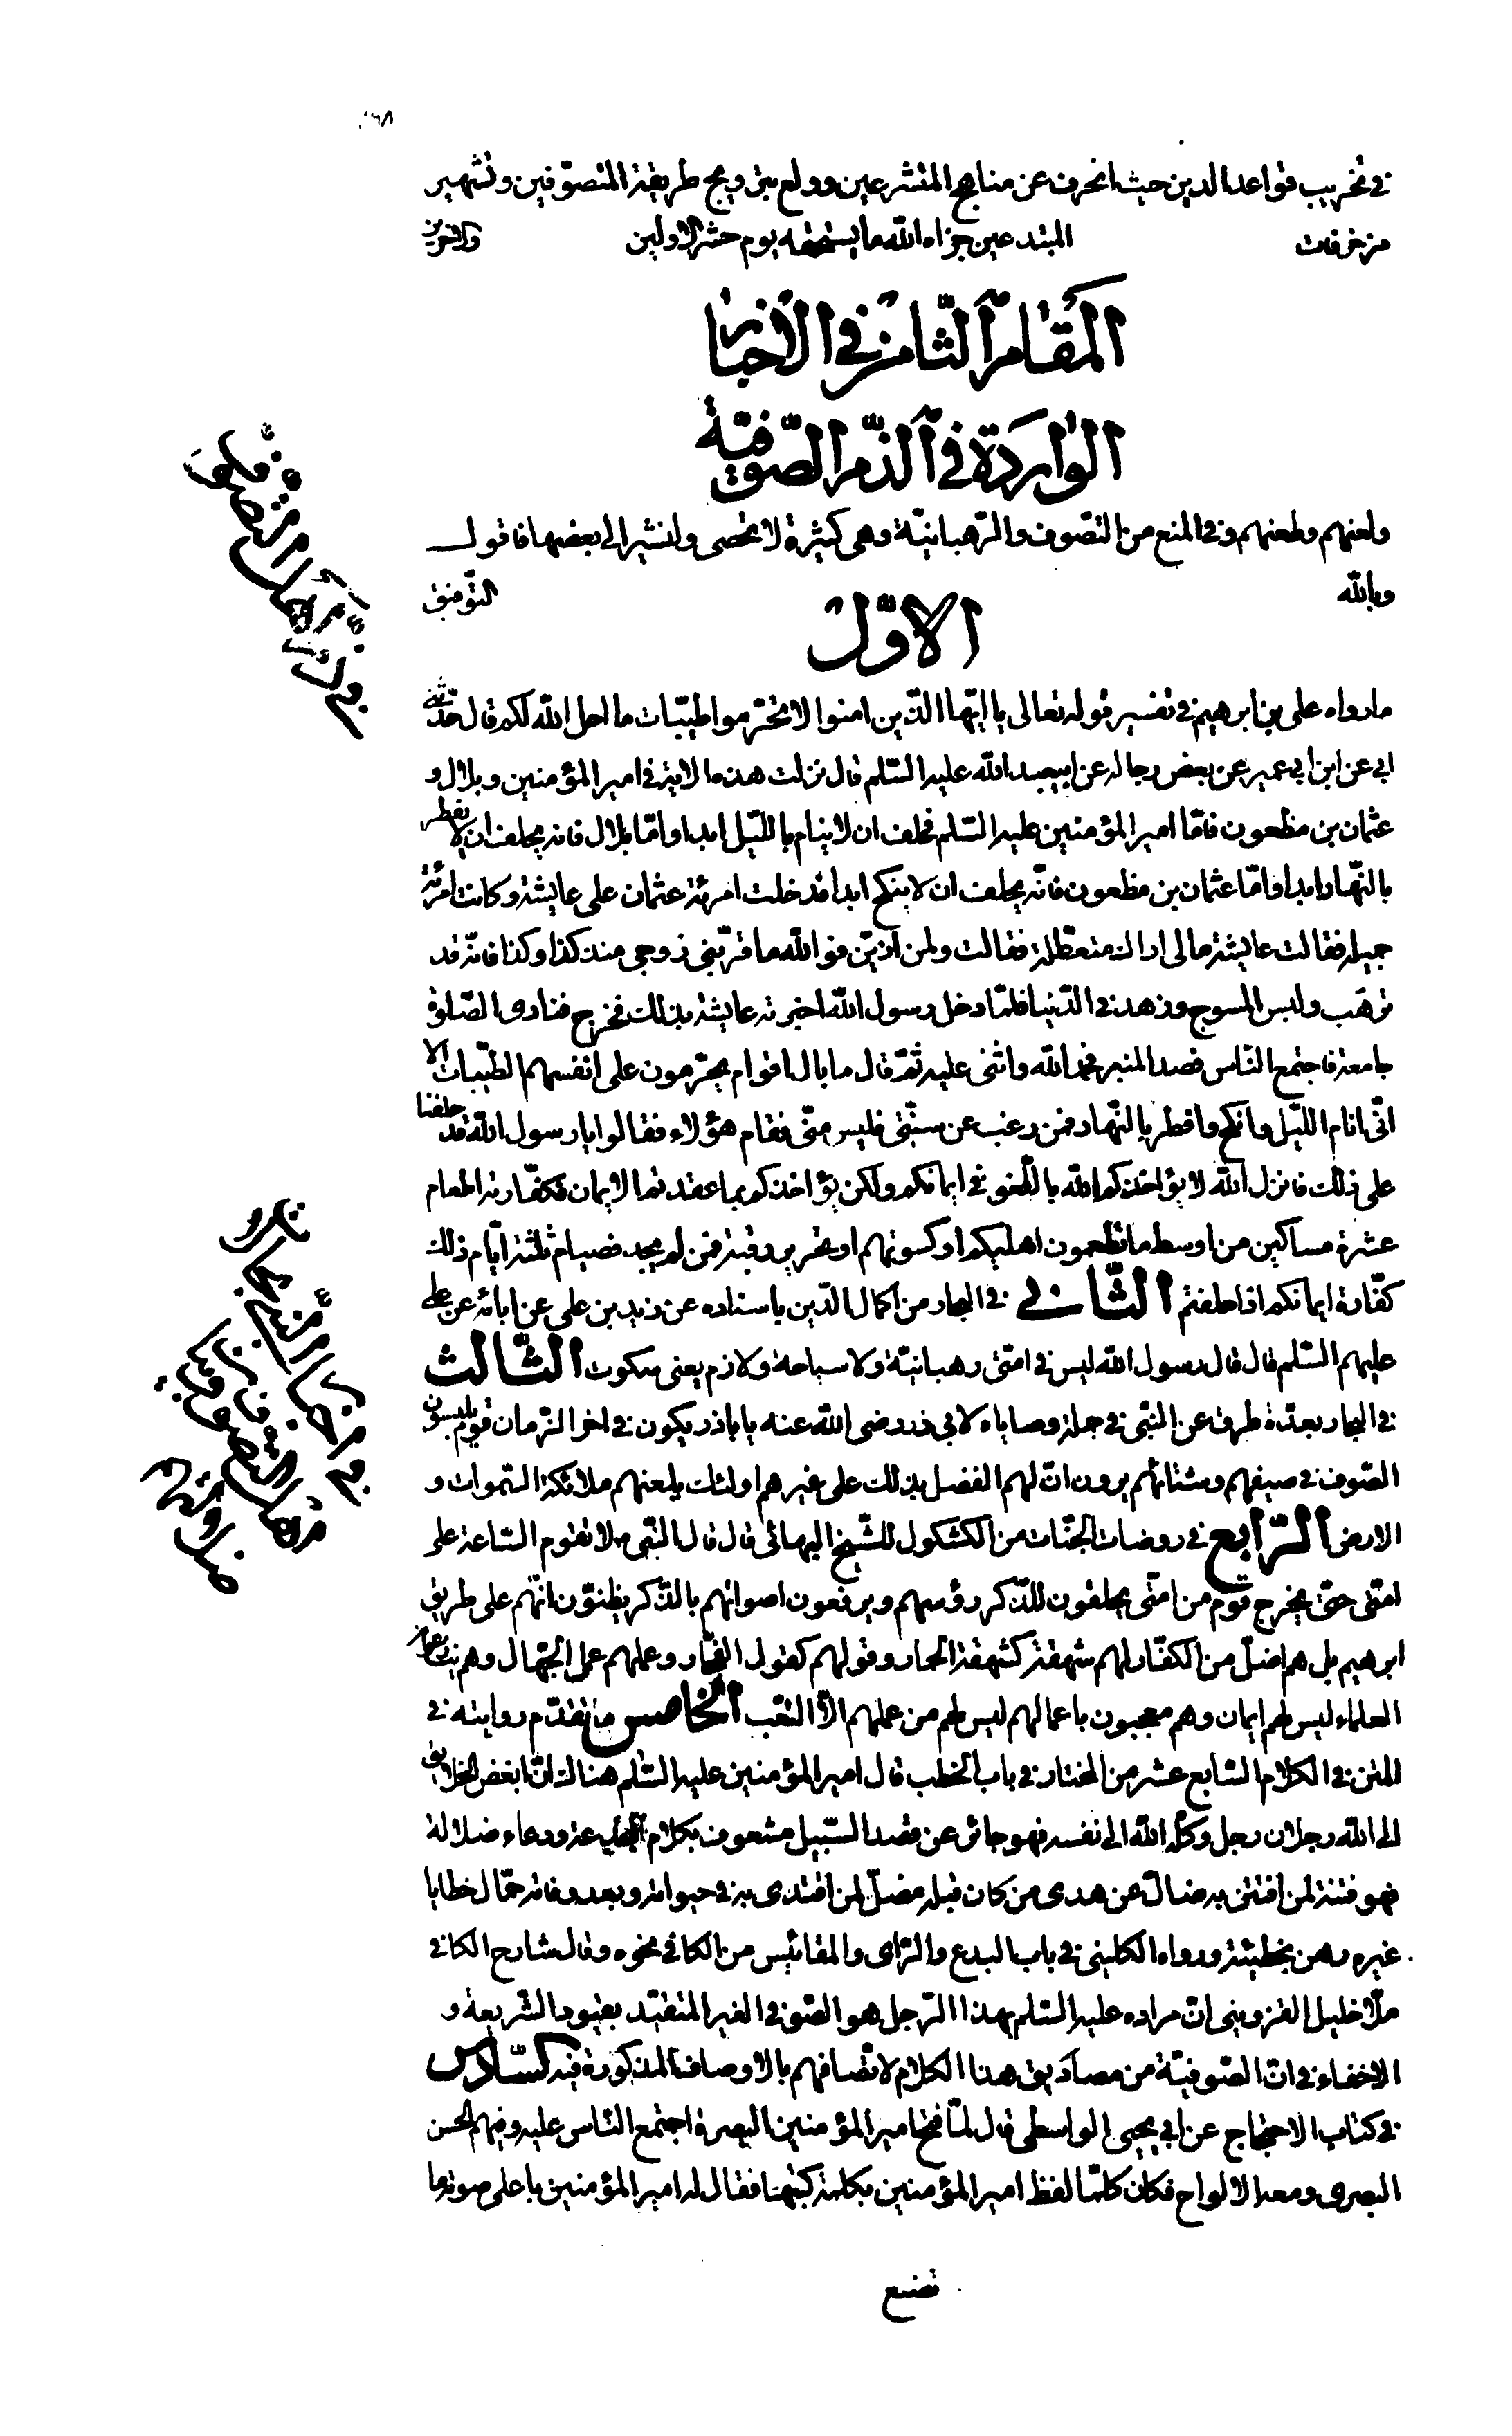 في تخريب قواعد الدين حيث انحرف عن مناهج المتشرعين وولع بترويج طريقة المتصوّفين وتشهير
مزخرفات المبتدعين جزاه الله ما يستحقه يوم حشر الاولين والاخرين
المقام الثامن في الاخبار
الواردة في الذّم الصّوفيّة
ولعنهم وطعنهم وفي المنع من التصّوف والرّهبانيّة وهي كثيرة لا تحصى ولنشير الى بعضها فاقول
وبالله التّوفيق
الاوّل
ما رواه علي بن ابرهيم في تفسير قوله تعالى يا ايّها الّذين امنوا لا تحرّموا طيّبات ما احل الله لكم قال حدّثني
ابي عن ابن ابي عمير عن بعض رجاله عن ابيعبد الله عليه السّلم قال نزلت هذه الاية في امير المؤمنين وبلال و
عثمان بن مظعون فامّا امير المؤمنين عليه السّلم فحلف ان لا ينام بالليّل ابدا وامّا بلال فانه يحلف ان لا يفطر
بالنّهار ابدا وامّا عثمان بن مظعون فانّه يحلف ان لا ينكح ابدا فدخلت امرئة عثمان على عايشة وكانت امرئة
جميلة فقالت عايشة مالى اراك متعطّلة فقالت ولمن اتزيّن فوالله ما قرّبني زوجي منذ كذا وكذا فانّه قد
ترهّب ولبس المسوح وزهد في الدّنيا فلمّا دخل رسول الله اخبرته عايشة بذلك فخرج فنادى الصّلوة
جامعة فاجتمع النّاس فصعد المنبر فحمد الله واثنى عليه ثمّ قال ما بال اقوام يحرّمون على انفسهم الطيّبات الا
انّي انام اللّيل وانكح وافطر بالنّهار فمن رغب عن سنّتي فليس منّي فقام هؤلاء فقالوا يا رسول الله قد حلفنا
على ذلك فانزل الله لا يؤاخذكم الله باللّغو في ايمانكم ولكن يؤاخذكم بما عقدتم الايمان فكفّارته اطعام
عشرة مساكين من اوسط ما تطعمون اهليكم او كسوتهم او تحرير رقبة فمن لم يجد فصيام ثلثة ايّام ذلك
كفّارة ايمانكم اذا حلفتم الثّاني في البحار من اكمال الدّين باسناده عن زيد بن علي عن ابائه عن علي
عليهم السّلم قال قال رسول الله ليس في امتي رهبانيّة ولا سياحة ولا زم يعني سكوت الثّالث
في البحار بعدّة طرق عن النّبي في جملة وصاياه لابي ذر رضي الله عنه يا باذر يكون في اخر الزّمان قوم يلبسون
الصّوف في صيفهم وشتائهم يرون انّ لهم الفضل بذلك على غيرهم اولئك يلعنهم ملائكة السّموات و
الارض الرّابع في روضات الجنّات من الكشكول للشّيخ البهائي قال قال النّبي لا تقوم السّاعة على
امتي حتّى يخرج قوم من امتّي يحلقون للذّكر رؤسهم ويرفعون اصواتهم بالذّكر يظنّون انّهم على طريق
ابرهيم بل هم اضلّ من الكفّار لهم شهقة كشهقة الحمار وقولهم كقول الفجّار وعملهم عمل الجّهال وهم ينازعون
العلماء ليس لهم ايمان وهم معجبون باعمالهم ليس لهم من عملهم الاّ التعّب الخامس ما تقدّم روايته في
المتن في الكلام السّابع عشر من المختار في باب الخطب قال امير المؤمنين عليه السّلم هنالك انّ ابغض الخلايق
الى الله رجلان رجل وكله الله الى نفسه فهو جائر عن قصد السّبيل مشعوف بكلام بدعة ودعاء ضلالة
فهو فتنة لمن افتتن به ضالّ عن هدى من كان قبله مضلّ لمن اقتدى به في حيواته وبعد وفاته حمّال خطايا
غيره رهن بخطيئته ورواه الكليني في باب البدع والرّاى والمقائيس من الكافي نحوه وقال شارح الكافي
ملاّ خليل القزويني انّ مراده عليه السّلم بهذا الرّجل هو الصّوفي الغير المتقيّد بقيود الشّريعة و
لا خفاء في انّ الصّوفيّة من مصاديق هذا الكلام لاتّصافهم بالاوصاف المذكورة فيه السّادس
في كتاب الاحتجاج عن ابي يحيى الواسطي قال لمّا فتح امير المؤمنين البصرة اجتمع النّاس عليه وفيهم الحسن
البصري ومعه الالواح فكان كلّما لفظ امير المؤمنين بكلمة كتبها فقال له امير المؤمنين باعلى صوته ما
تصنع